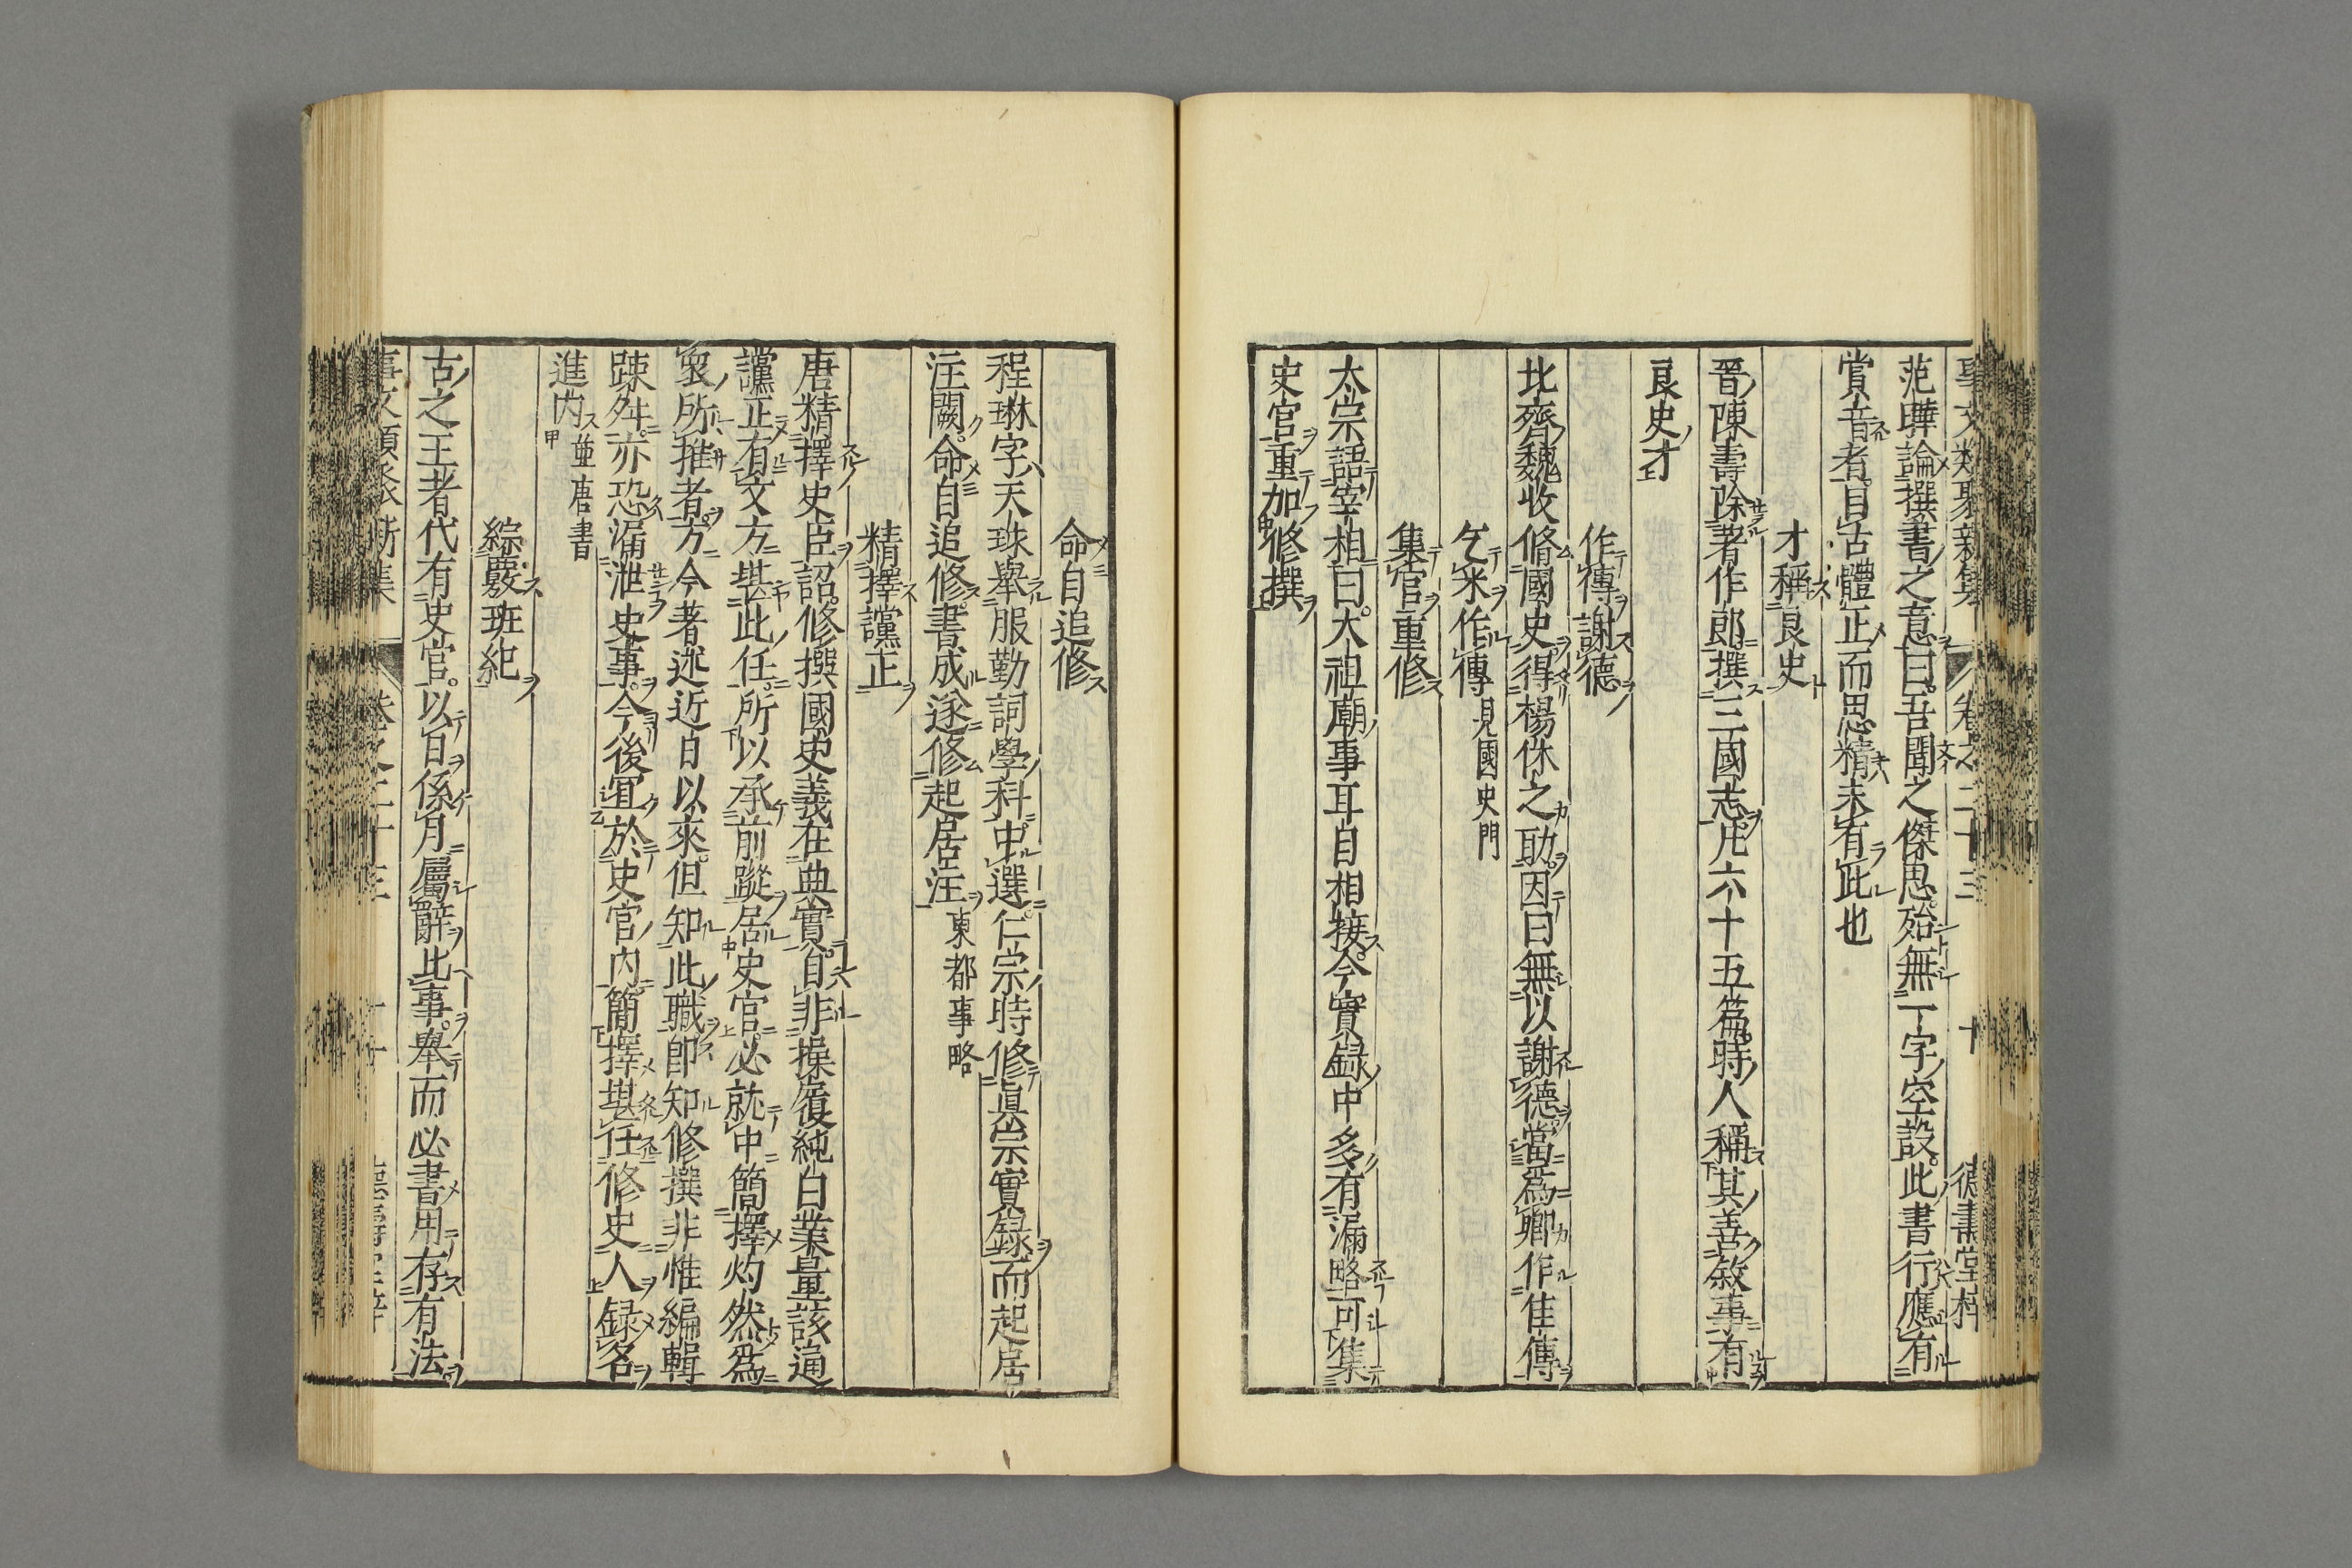 事文類聚新集 卷之二十三 十 德壽堂梓
范曄論撰書之意曰吾聞之傑思殆無一字空設此書行應有
賞音者自古體正而思精未有此也
才稱良史
晉陳壽除著作郎撰三國志凡六十五篇時人稱其善敘事有
良史才
作傳謝德
北齊魏收脩國史得楊休之助因曰無以謝德當爲卿作佳傳
乞米作傳 見國史門
集官重修
太宗語宰相曰太祖廟事耳目相接今實録中多有漏略可集
史官重加修撰
命自追修
程琳字天球舉服勤詞學科中選仁宗時修眞宗實錄而起居
注闕命自追修書成遂修起居注 東都事略
精擇讜正
唐精擇史臣詔修撰國史義在典實自非操履純白業量該通
讜正有文方堪此任所以承前蹤居史官必就中簡擇灼然爲
衆所推者方今著述近日以來但知此職卽知修撰非惟編輯
踈舛亦恐漏泄史事今後宜於史官內簡擇堪任修史人録名
進內 並唐書
綜覈班紀
古之王者代有史官以日係月屬辭比事舉而必書用存有法
事文類聚新集 卷之二十三